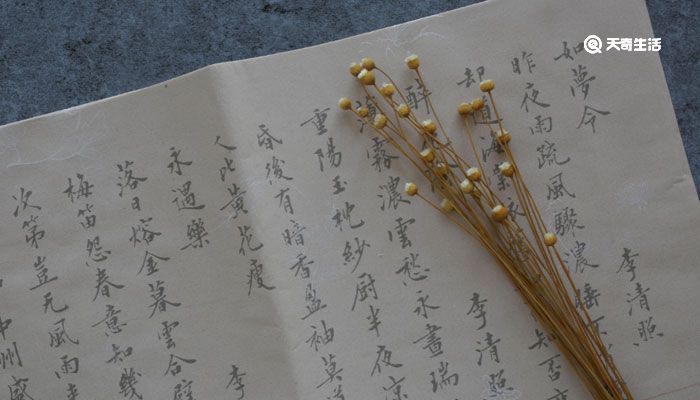 天奇生活
如夢令
李清照
昨夜雨疏風驟濃睡不
却道海棠依
知否
醉
李清照
薄霧濃雲愁永晝瑞
重陽玉枕紗厨半夜凉
昏後有暗香盈袖莫道
人比黃花瘦
永遇樂
李
落日熔金暮雲合璧
梅笛怨春意知幾
次第豈无風雨
中州盛